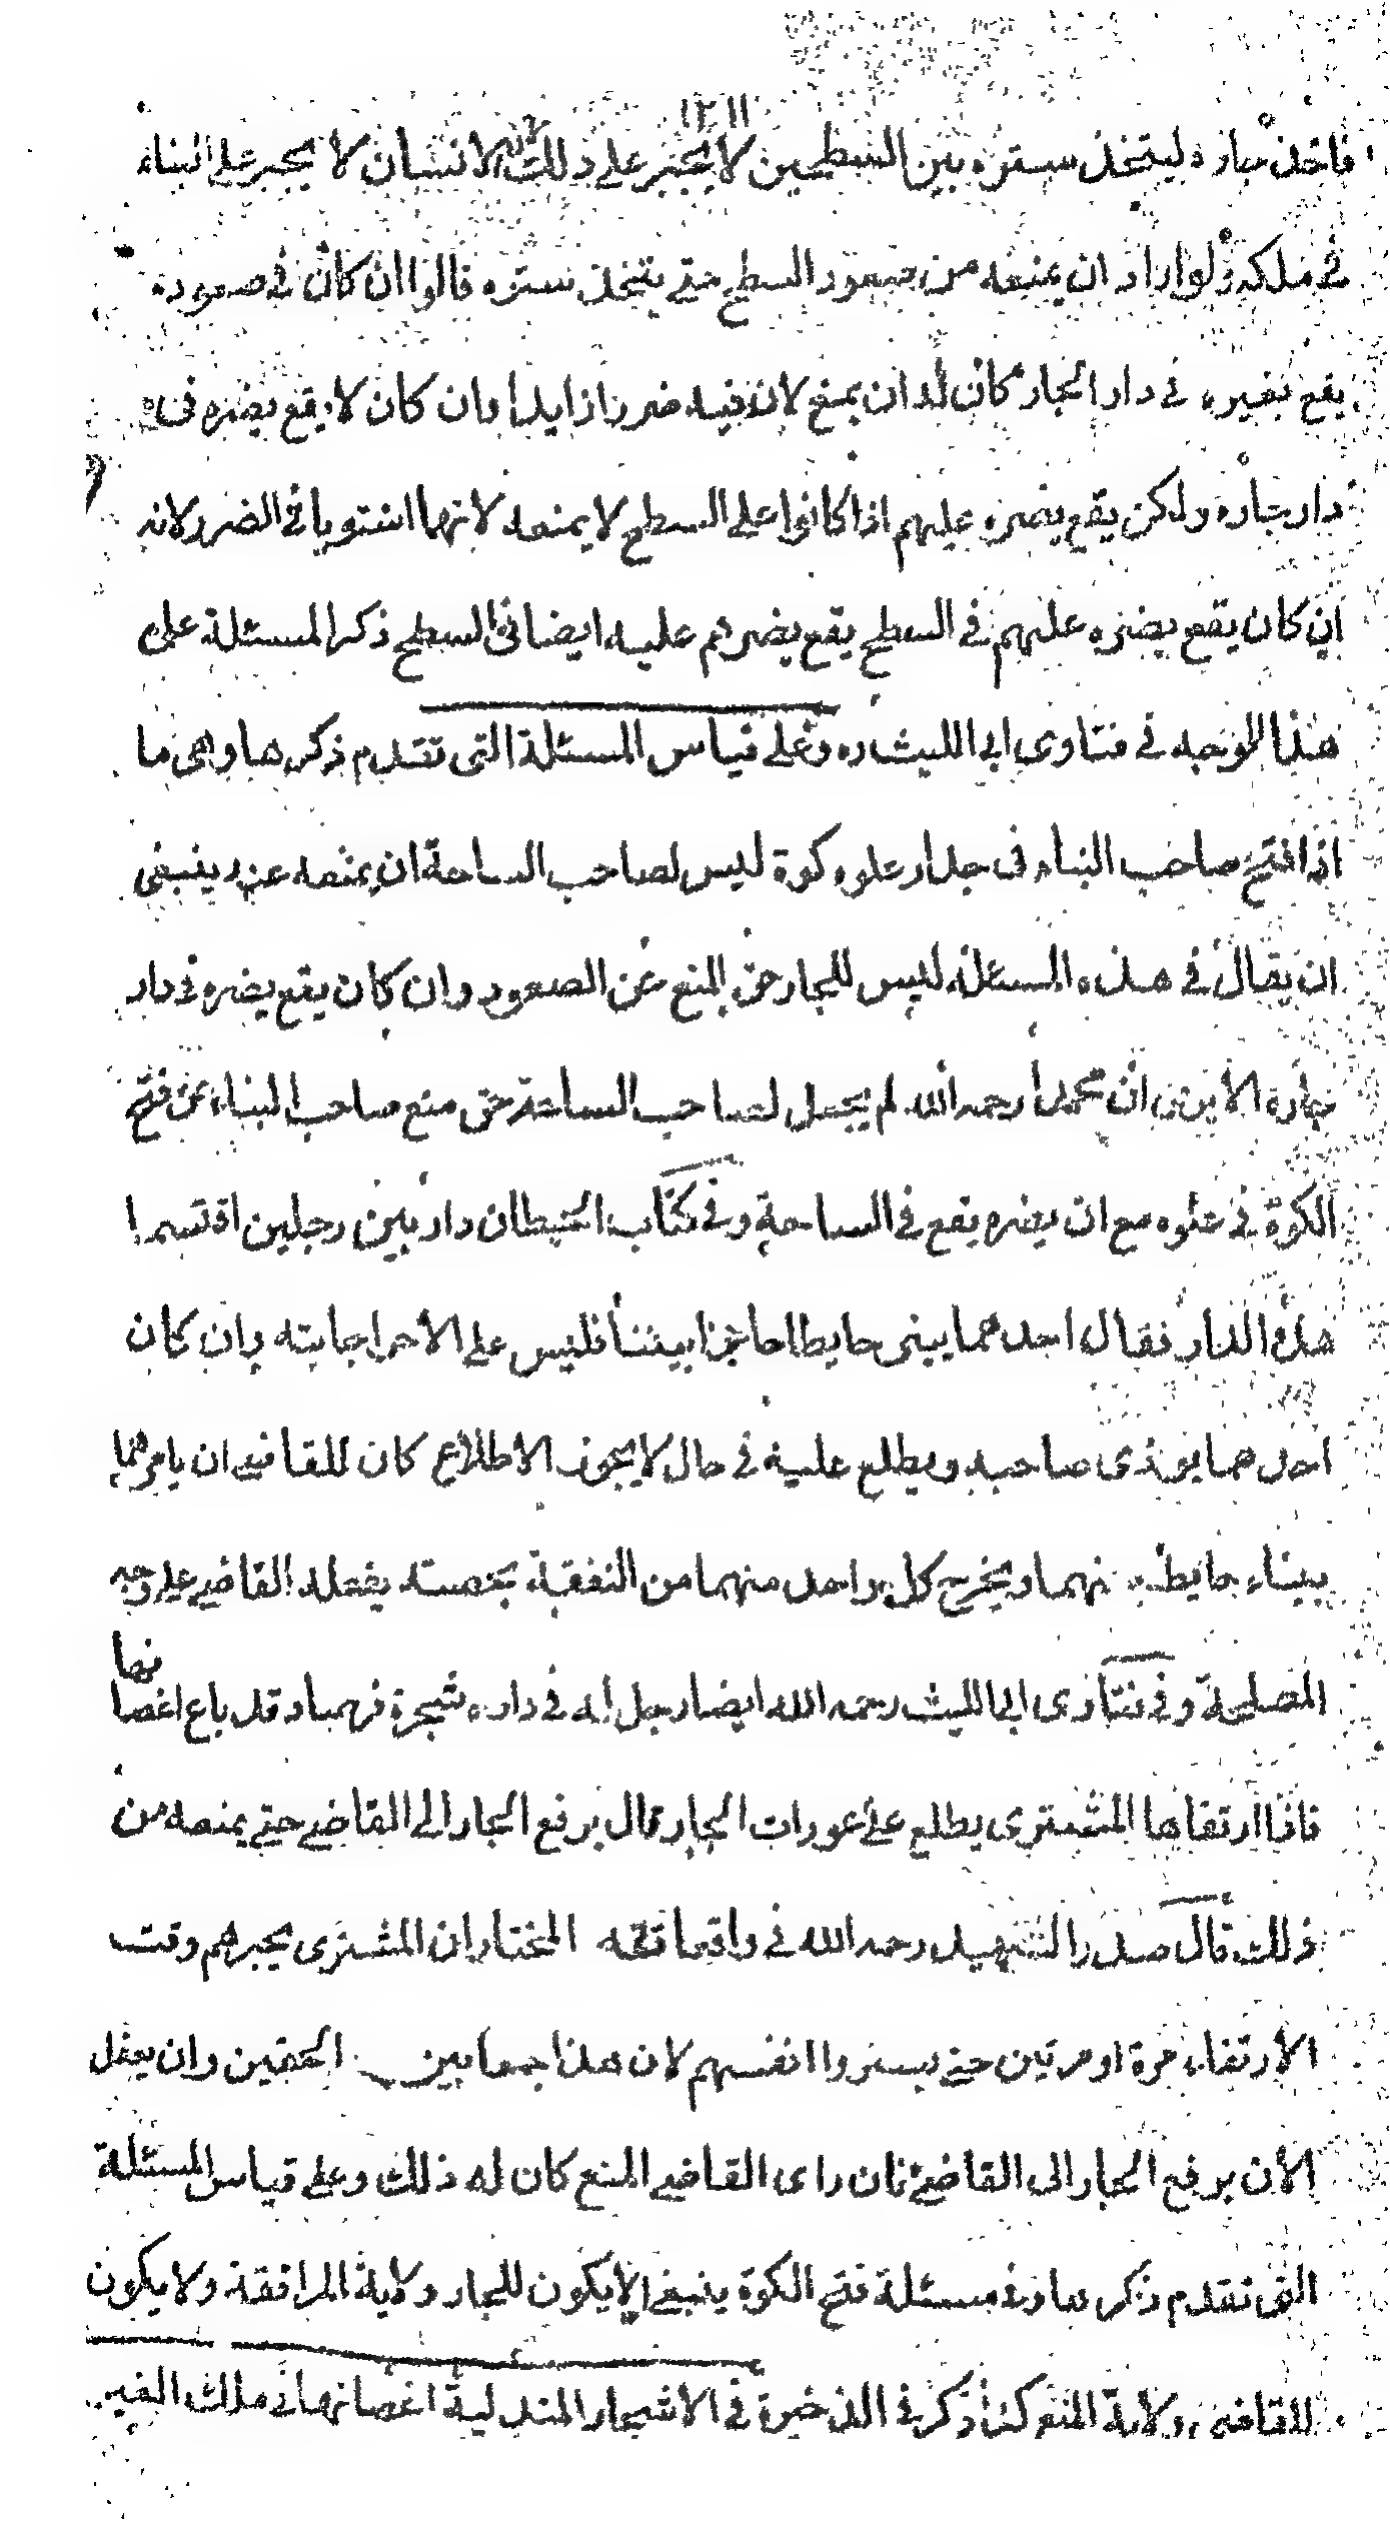 فاخذ جاره ليتخذ سترة بين السطحين لا يجبر على ذلك لان الانسان لا يجبر على البناء
في ملكه ولو اراد ان يمنعه من صعود السطح حتى يتخذ سترة قالوا ان كان في صعوده
يقع بصره في دار الجار كان له ان يمنع لان فيه ضررا زايدا وان كان لا يقع بصره في
دار جاره ولكن يقع بصره عليهم اذا كانوا على السطح لا يمنعه لانهما استويا في الضرر لانه
ان كان يقع بصره عليهم في السطح يقع بصرهم عليه ايضا في السطح ذكر المسئلة على
هذا الوجه في فتاوى ابى الليث ره وعلى قياس المسئلة التى تقدم ذكرها وهى ما
اذا فتح صاحب البناء فى جدار علوه كوة ليس لصاحب الساحة ان يمنعه عنه ينبغى
ان يقال في هذه المسئلة ليس للجار حق المنع عن الصعود وان كان يقع بصره في دار
جاره الا يرى ان محمدا رحمه الله لم يجعل لصاحب الساحة حق منع صاحب البناء عن فتح
الكوة في علوه مع ان بصره يقع في الساحة وفي كتاب الحيطان دار بين رجلين اقتسما
هذه الدار فقال احدهما يبنى حايطا حاجزا بيننا فليس على الآخر اجابته وان كان
احدهما يوذى صاحبه ويطلع عليه في حال لا يجوز الاطلاع كان للقاضي ان يامرهما
ببناء حايط بينهما ويخرج كل واحد منهما من النفقة بحصته يفعله القاضي على وجه
المصلحة وفي فتاوى ابى الليث رحمه الله ايضا رجل له في داره شجرة فرصاد وقد باع اغصانها
فاذا ارتقاها المشترى يطلع على عورات الجار قال يرفع الجار الى القاضي حتى يمنعه من
ذلك قال صدر الشهيد رحمه الله في واقعاته المختار ان المشترى يخبرهم وقت
الارتقاء مرة او مرتين حتى يستروا انفسهم لان هذا جمعا بين الحقين وان لم يفعل
الان يرفع الجار الى القاضي فان راى القاضي المنع كان له ذلك وعلى قياس المسئلة
التى تقدم ذكرها وفي مسئلة فتح الكوة ينبغى ان لا يكون للجار ولاية المرافقة ولا يكون
للقاضى ولاية المنع كذا ذكر في الذخيرة في الاشجار المتدلية اغصانها في ملك الغير